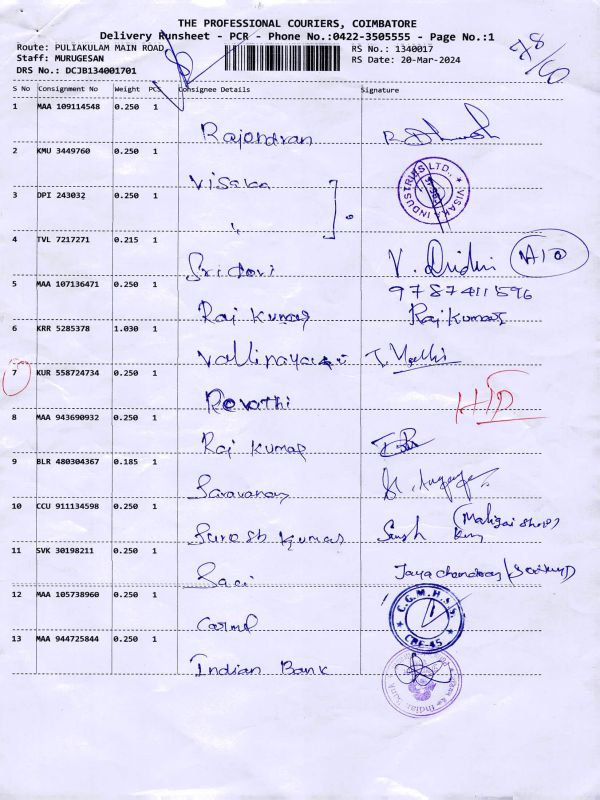 THE PROFESSIONAL COURIERS, COIMBATORE
Delivery Runsheet - PCR - Phone No.:0422-3505555 - Page No.:1
Route: PULIAKULAM MAIN ROAD RS No.: 1340017
Staff: MURUGESAN RS Date: 20-Mar-2024
DRS No.: DCJB134001701
78/60
S No Consignment No Weight PCS Consignee Details Signature
1 MAA 109114548 0.250 1
Rajendran
2 KMU 3449760 0.250 1
Visaka
VISAKA INDUSTRIES LTD.,
3 DPI 243032 0.250 1
4 TVL 7217271 0.215 1
Sridevi V.
5 MAA 107136471 0.250 1
9787411596
Raj Kumar Raj Kumar
6 KRR 5285378 1.030 1
Vallinayagi
7 KUR 558724734 0.250 1
Revathi
8 MAA 943690932 0.250 1
Raj Kumar
9 BLR 480304367 0.185 1
Saravanan
10 CCU 911134598 0.250 1
Suresh Kumar
11 SVK 30198211 0.250 1
Jayachandran
12 MAA 105738960 0.250 1
Carmel
C.G.M.H.S.S
CBE-45
13 MAA 944725844 0.250 1
Indian Bank
Indian Bank